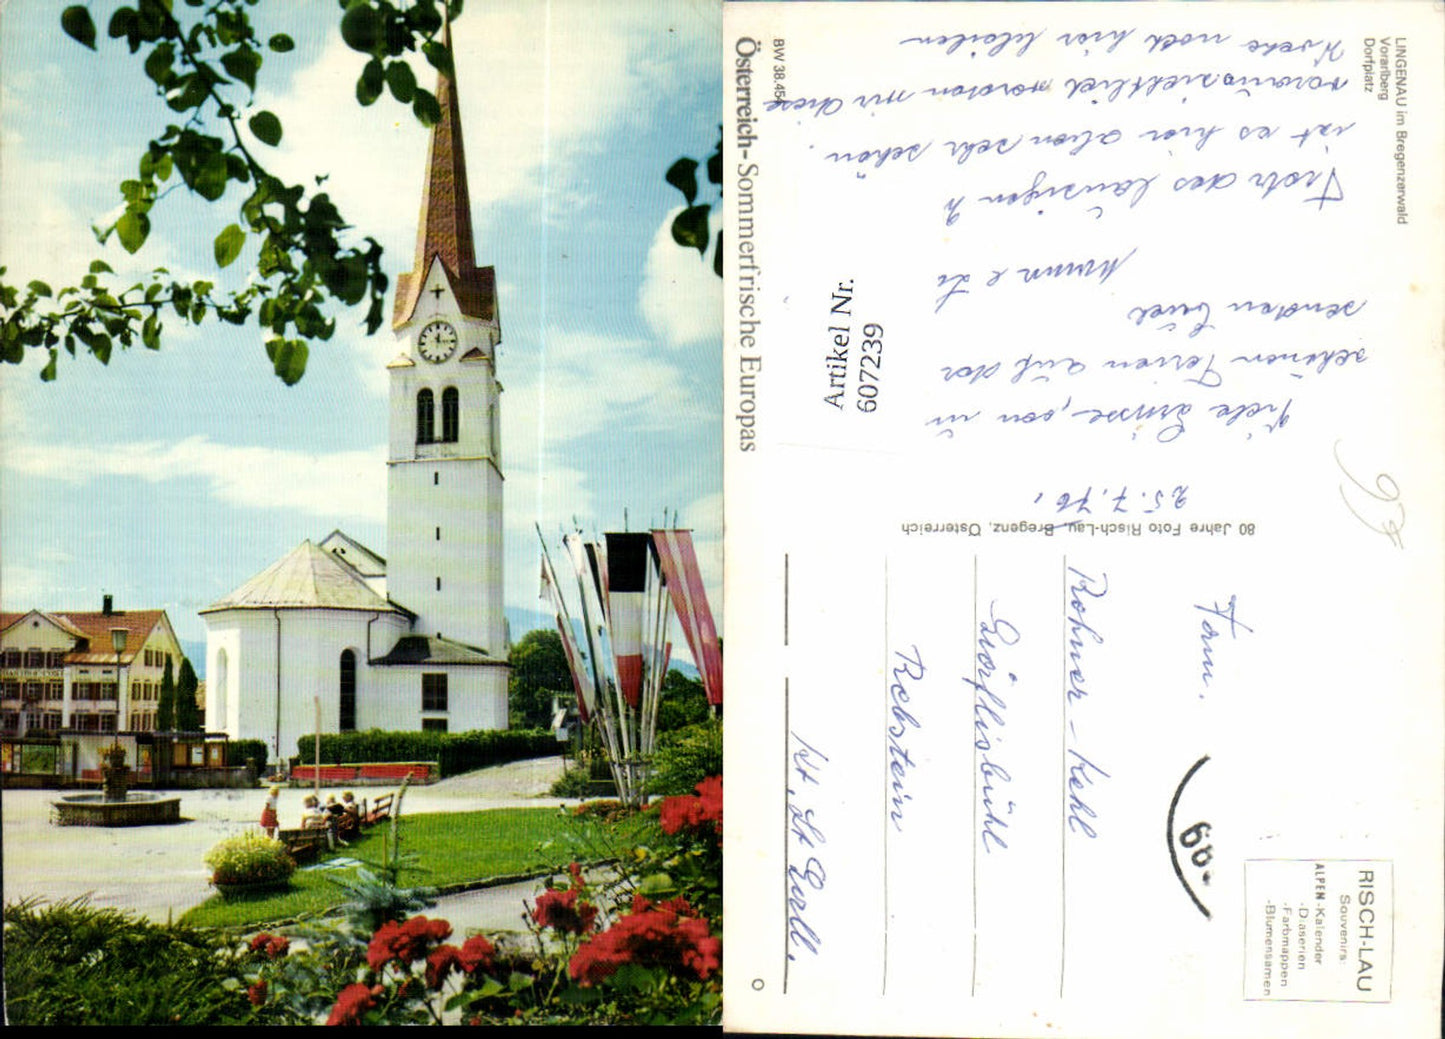 LINGENAU im Bregenzerwald
Vorarlberg
Dorfplatz
25. 7. 76.
Viele Grüsse, von
schönen Ferien auf der
senden Euch
Trotz des
ist es hier oben sehr schön.
voraussichtlich werden wir diese
Woche noch hier bleiben
80 Jahre Foto Risch-Lau, Bregenz, Österreich
Fam.
Rohner - Kehl
Rebstein
Kt. St Gall.
RISCH-LAU
Souvenirs:
ALPEN-Kalender
-Diaserien
-Farbmappen
-Blumensamen
Artikel Nr.
607239
BW 38.454
Österreich-Sommerfrische Europas